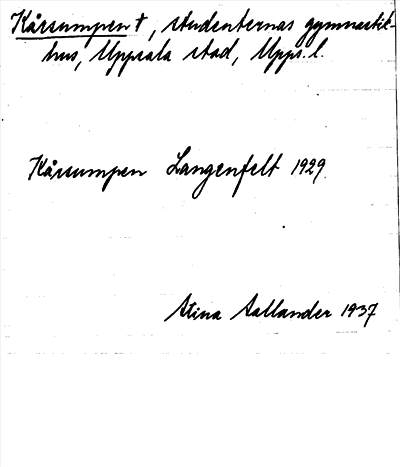 Kårsumpen †, studenternas gymnastik-
hus, Uppsala stad, Upps. l.
Kårsumpen Langenfelt 1929.
Stina Sallander 1937